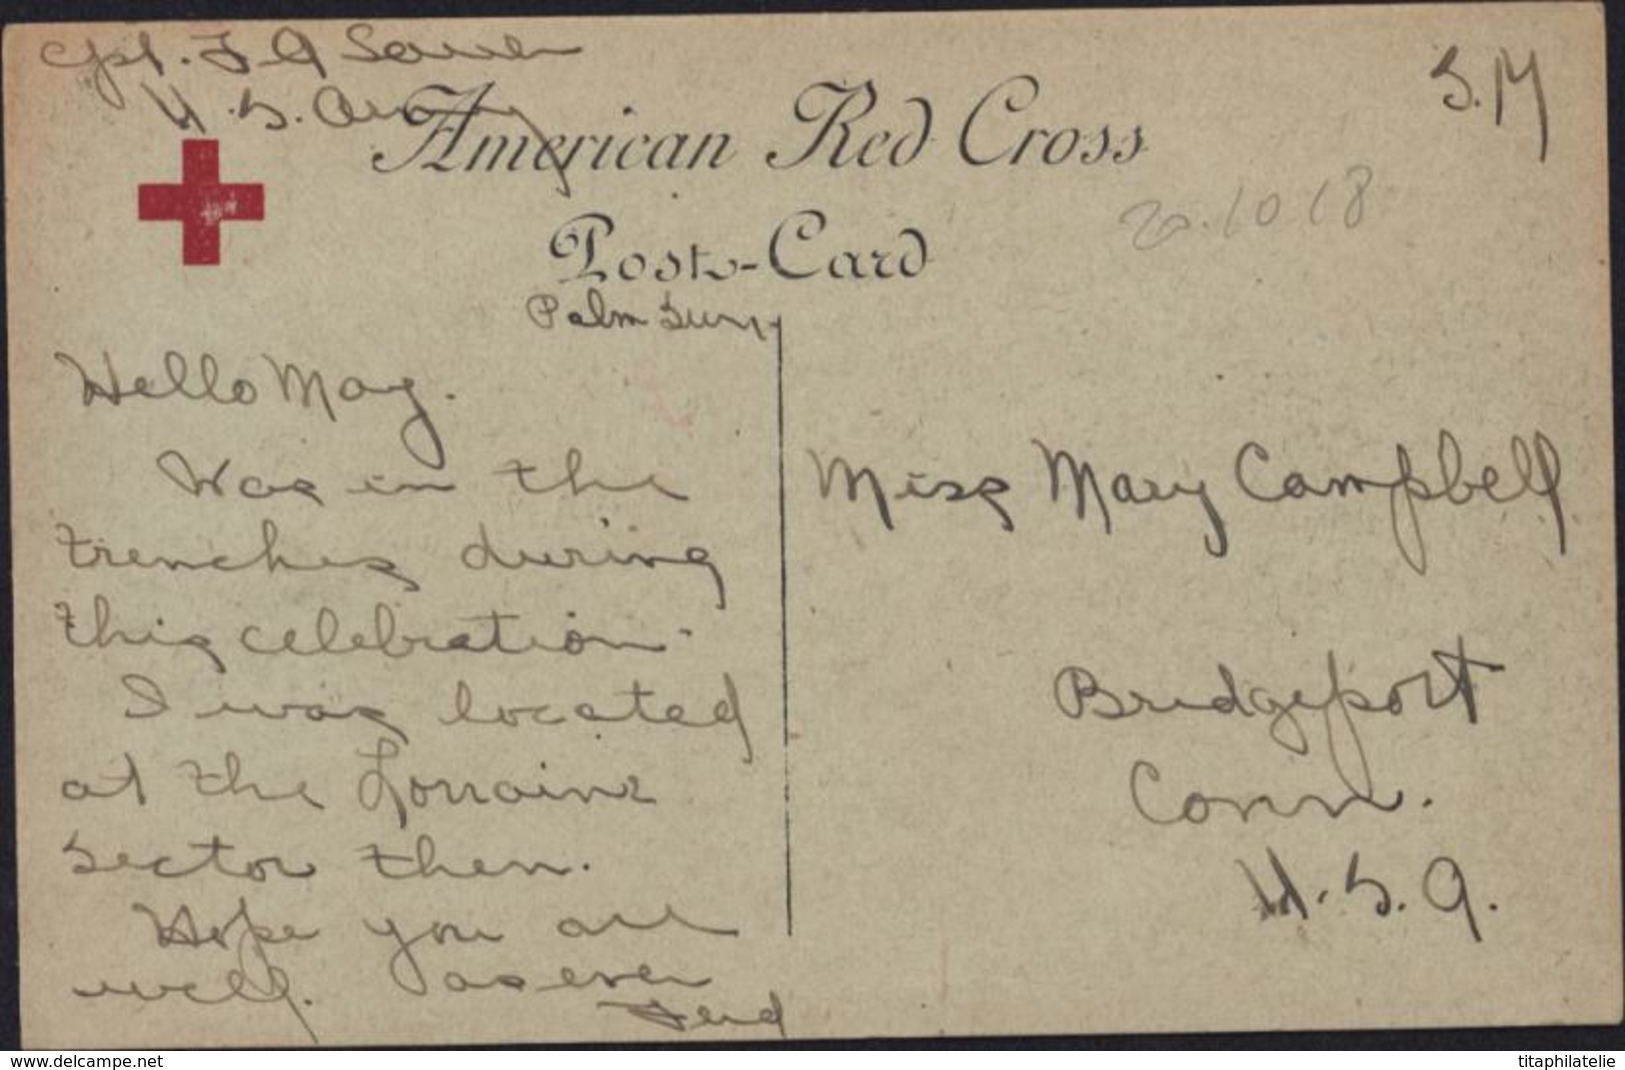 Cpl. F A Sauer
U.S. Army
American Red Cross
Post-Card
S.M
20.10 18
Palm Sun.
Hello May.
Was in the
trenches during
this celebration.
I was located
at the Lorraine
Sector then.
Hope you are
well. as ever
Ferd
Miss Mary Campbell
Bridgeport
Conn.
U.S.A.
www.delcampe.net
titaphilatelie